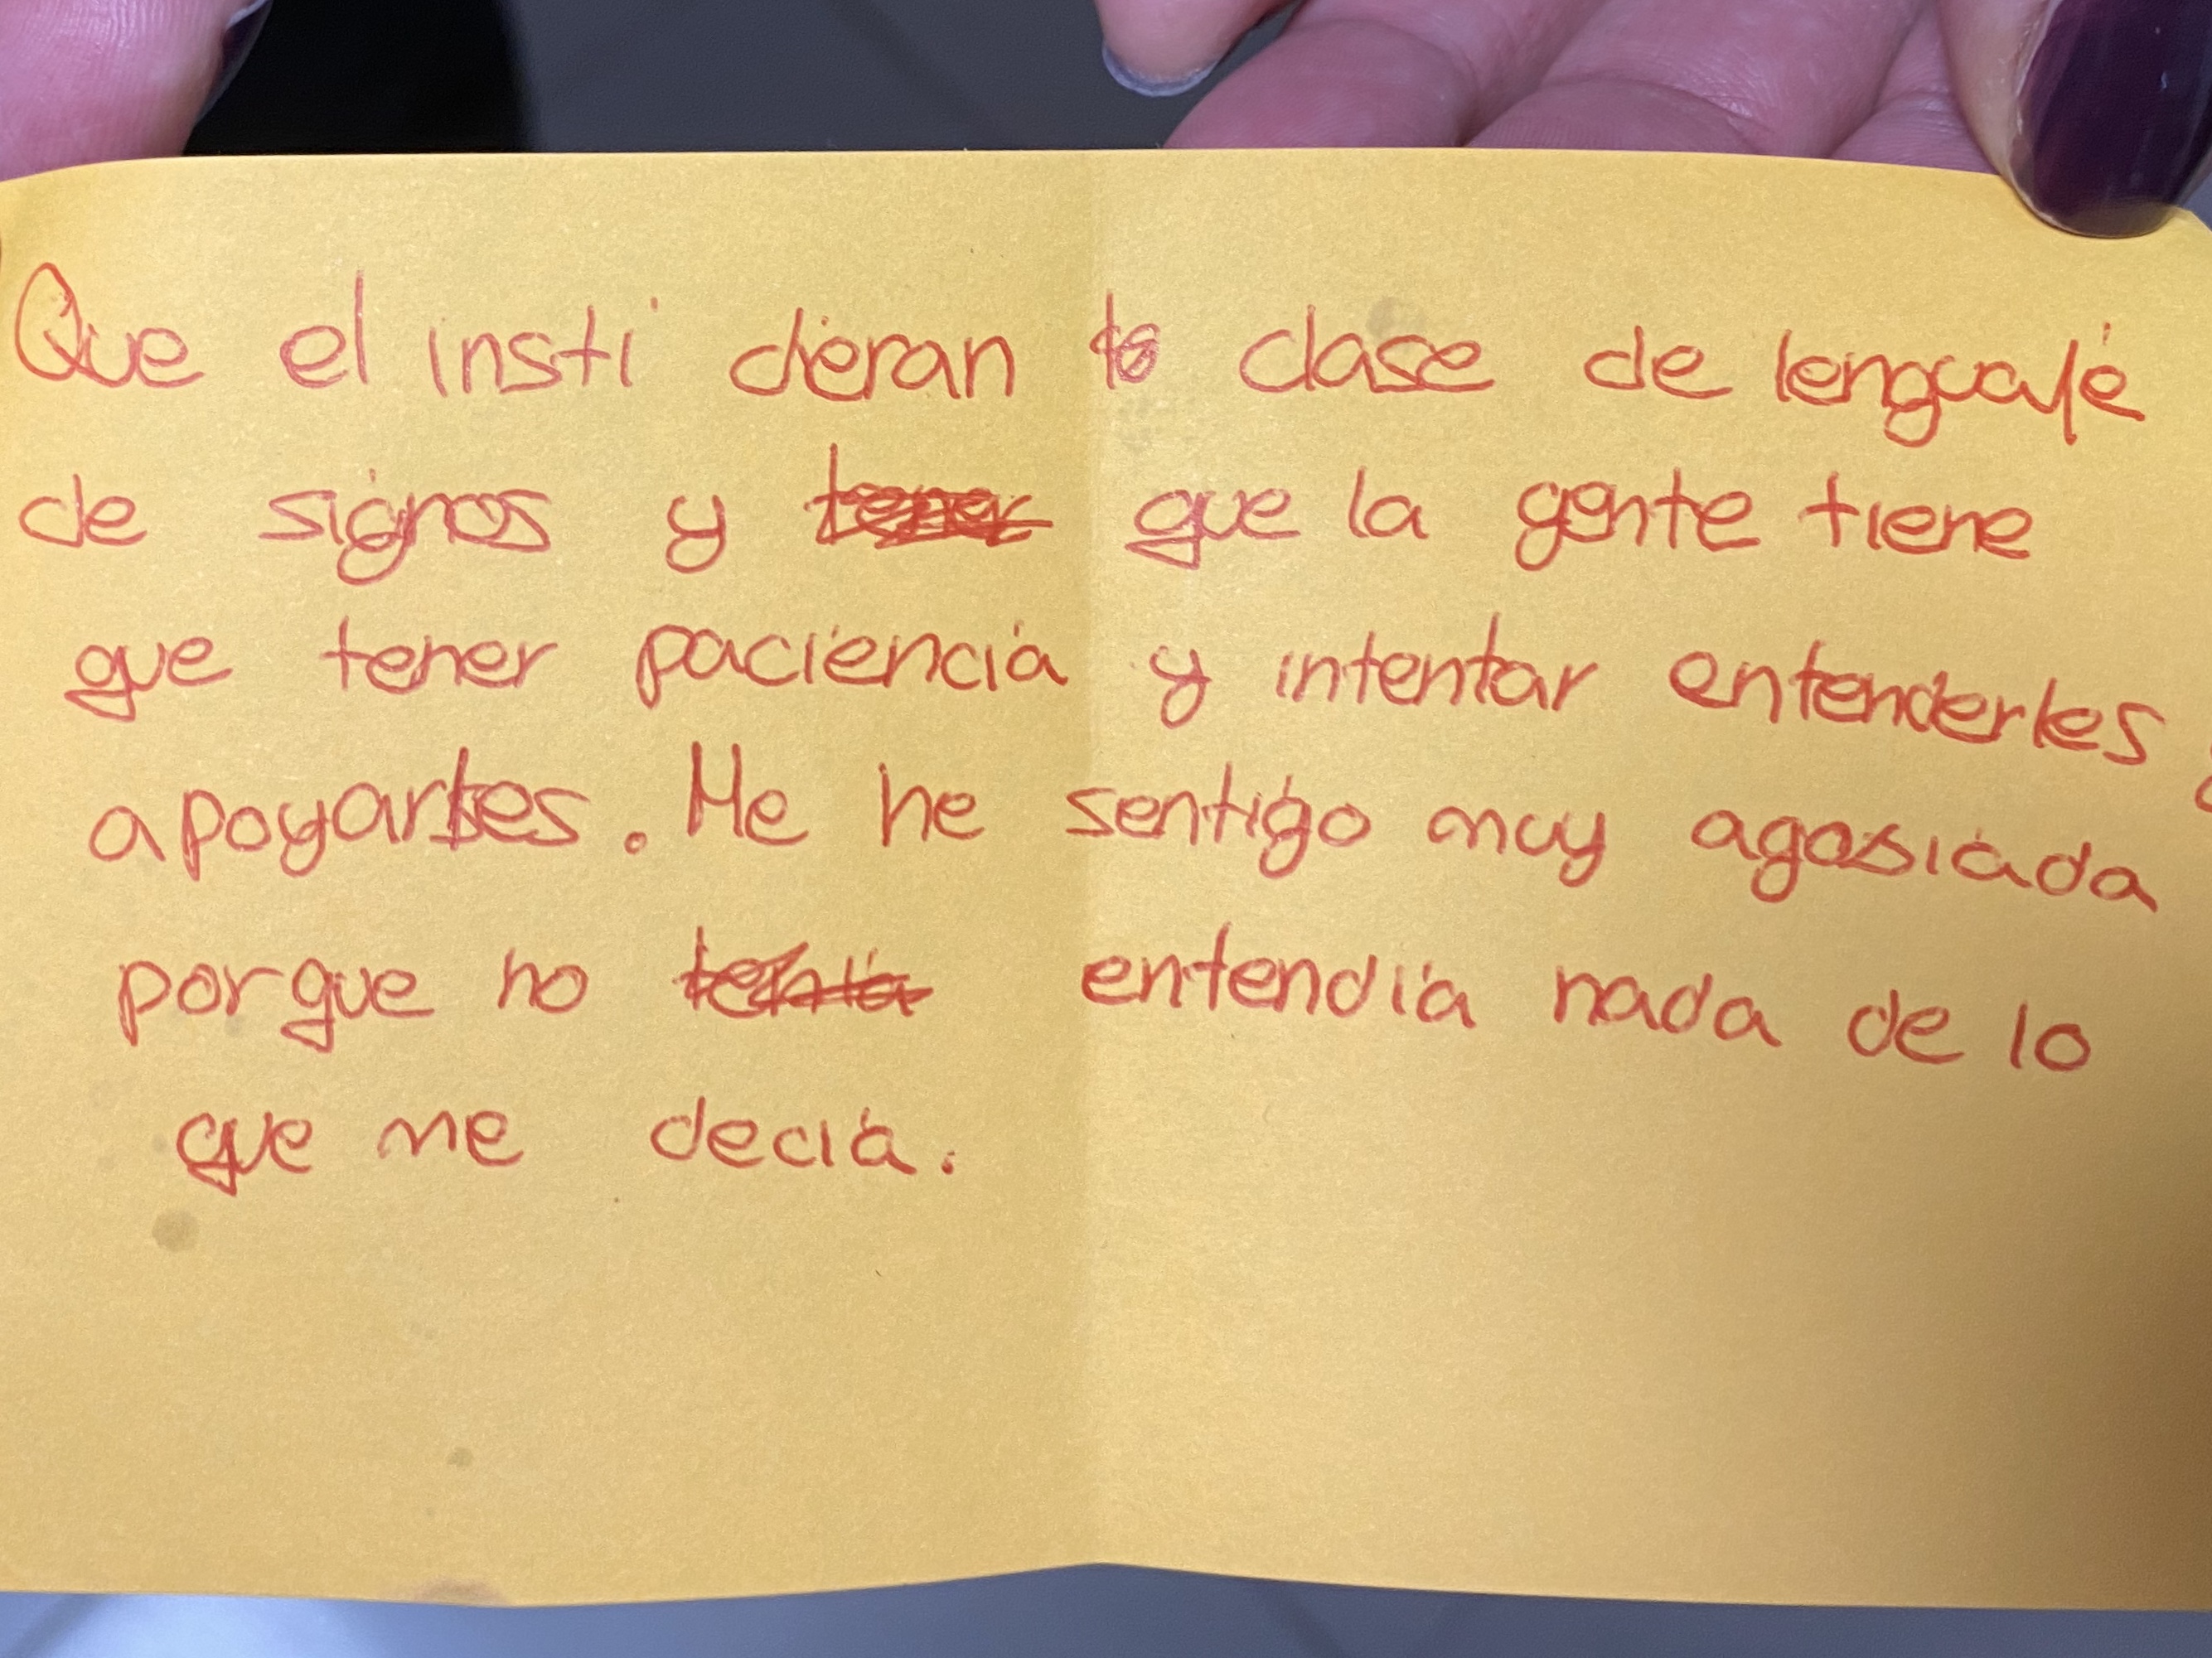 Que el insti dieran clase de lenguaje
de signos y tener que la gente tiene
que tener paciencia y intentar entenderles y
apoyarles. Me he sentido muy agosiada
porque no tenia entendia nada de lo
que me decia.